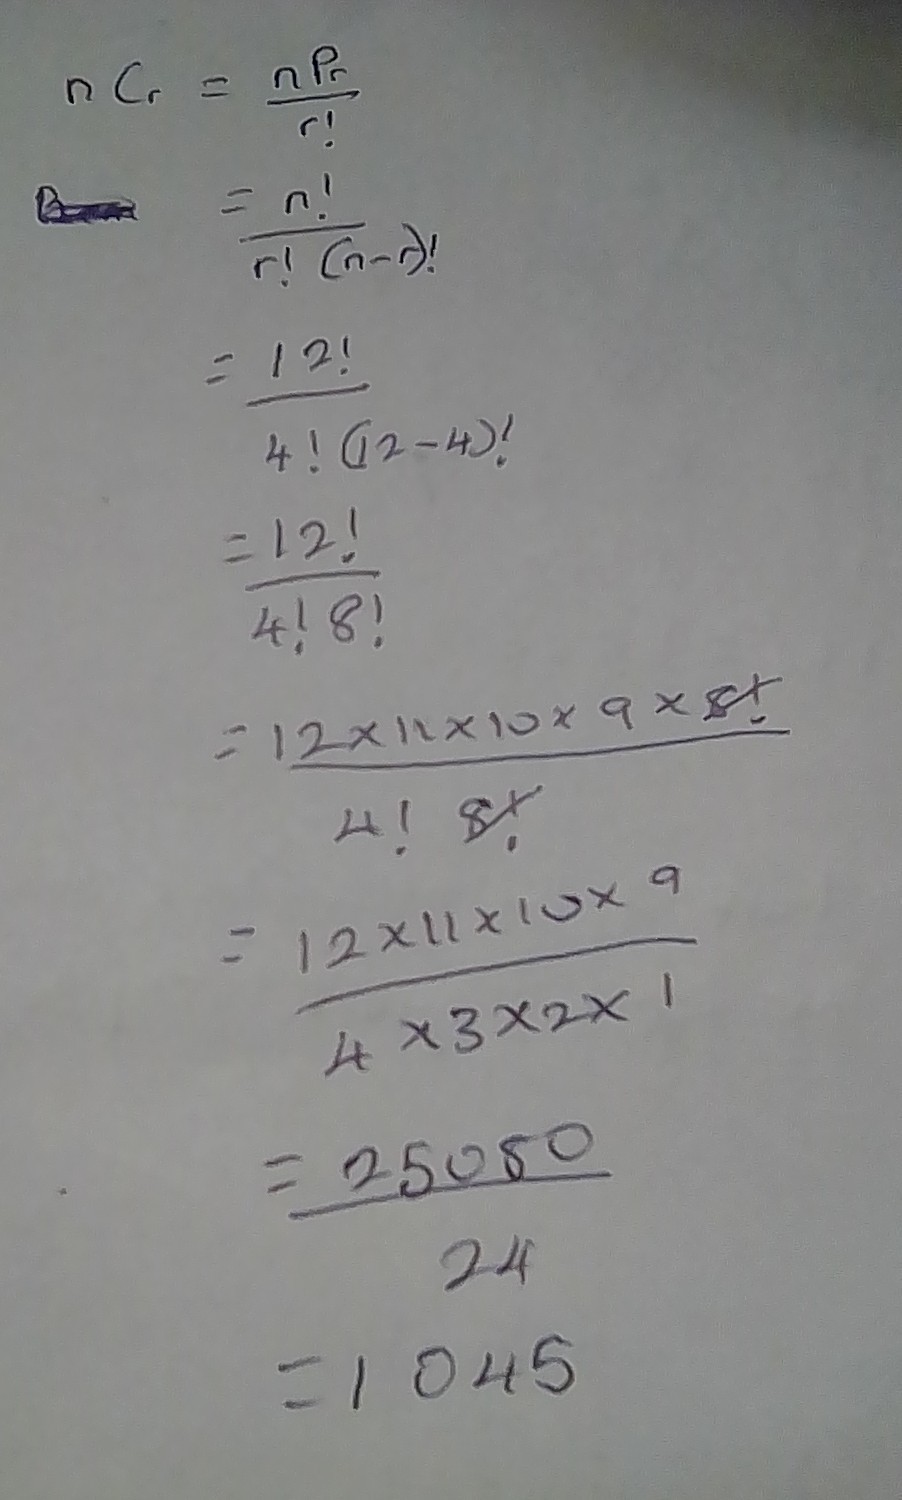 nCr = nPr
r!
= n!
r! (n-r)!
= 12!
4! (12-4)!
= 12!
4! 8!
= 12 × 11 × 10 × 9 × 8!
4! 8!
= 12 × 11 × 10 × 9
4 × 3 × 2 × 1
= 25080
24
= 1045